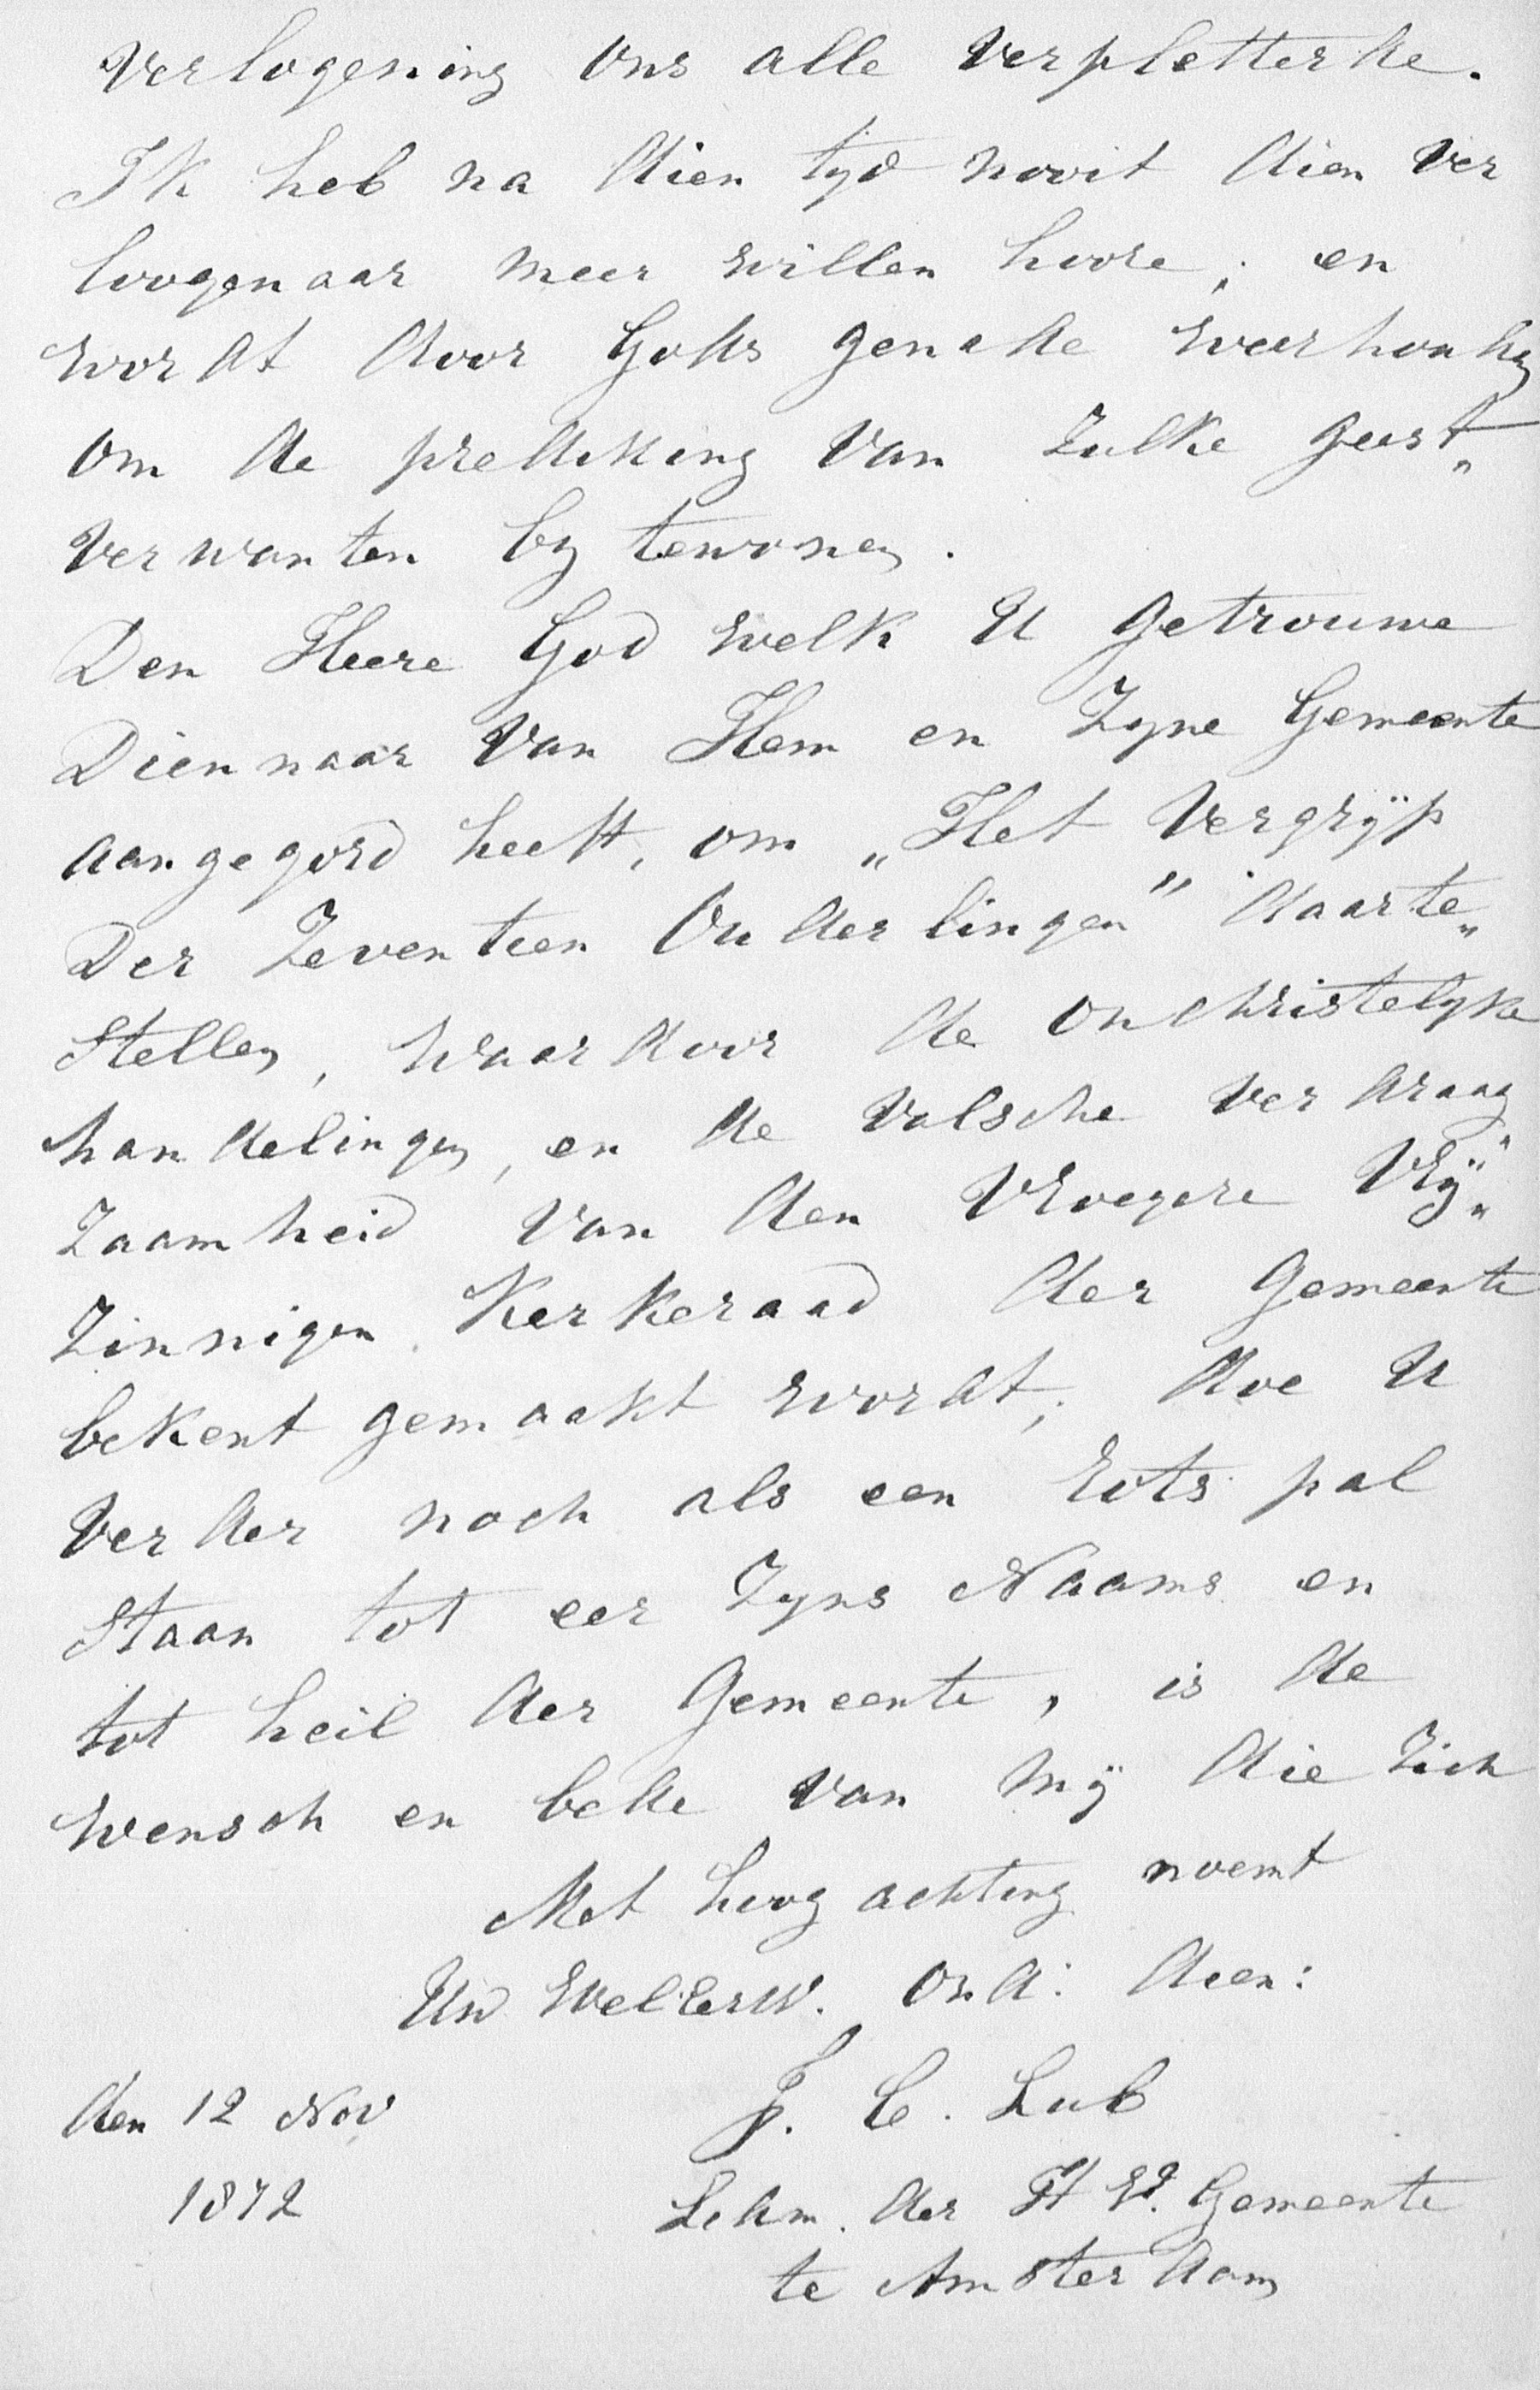 Verlogening ons alle verpletterde.
Ik heb na dien tyd nooit dien ver
loogenaar meer willen hoore; en
wordt door Gods genade weerhoudg
om de prediking van zulke geest„
verwanten by tewonen.
Den Heere God welk U getrouwe
Dien naar van Hem en Zyne Gemeente
aangegord heeft, om „Het Vergrÿp
Der Zeventeen Ouderlingen" daarte„
Stellen, waardoor de onchristelyke
handelingen, en de valsche verdraag„
zaamheid van den vroegere Vrÿ„
zinnigen Kerkeraad der Gemeente
bekent gemaakt wordt; doe U
verder noch als een rots pal
Staan tot eer Zyns Naams en
tot heil der Gemeente, is de
wensch en bede van mÿ die zich
Met hoog achting noemt
Uw WelEerw. ond: dien:
den 12 Nov F. C. Lub
1872 Ledm. der H Ed. Gemeente
te Amsterdam